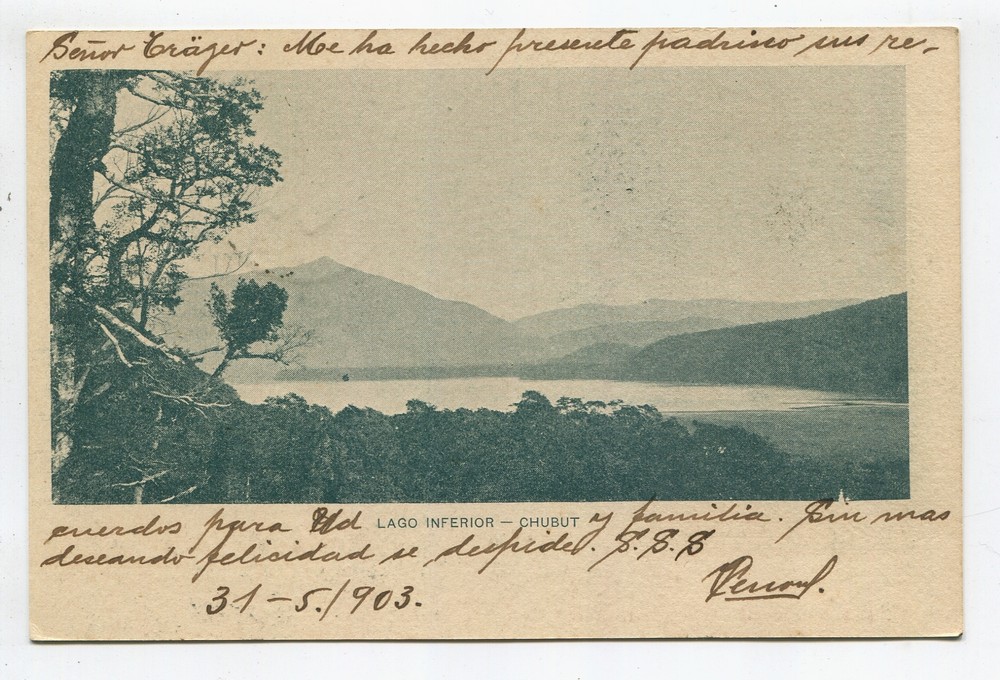 Señor Träger: Me ha hecho presente padrino sus re-
cuerdos para Ud LAGO INFERIOR — CHUBUT y familia. Sin mas
deseando felicidad se despide. S.S.S
31-5./903.